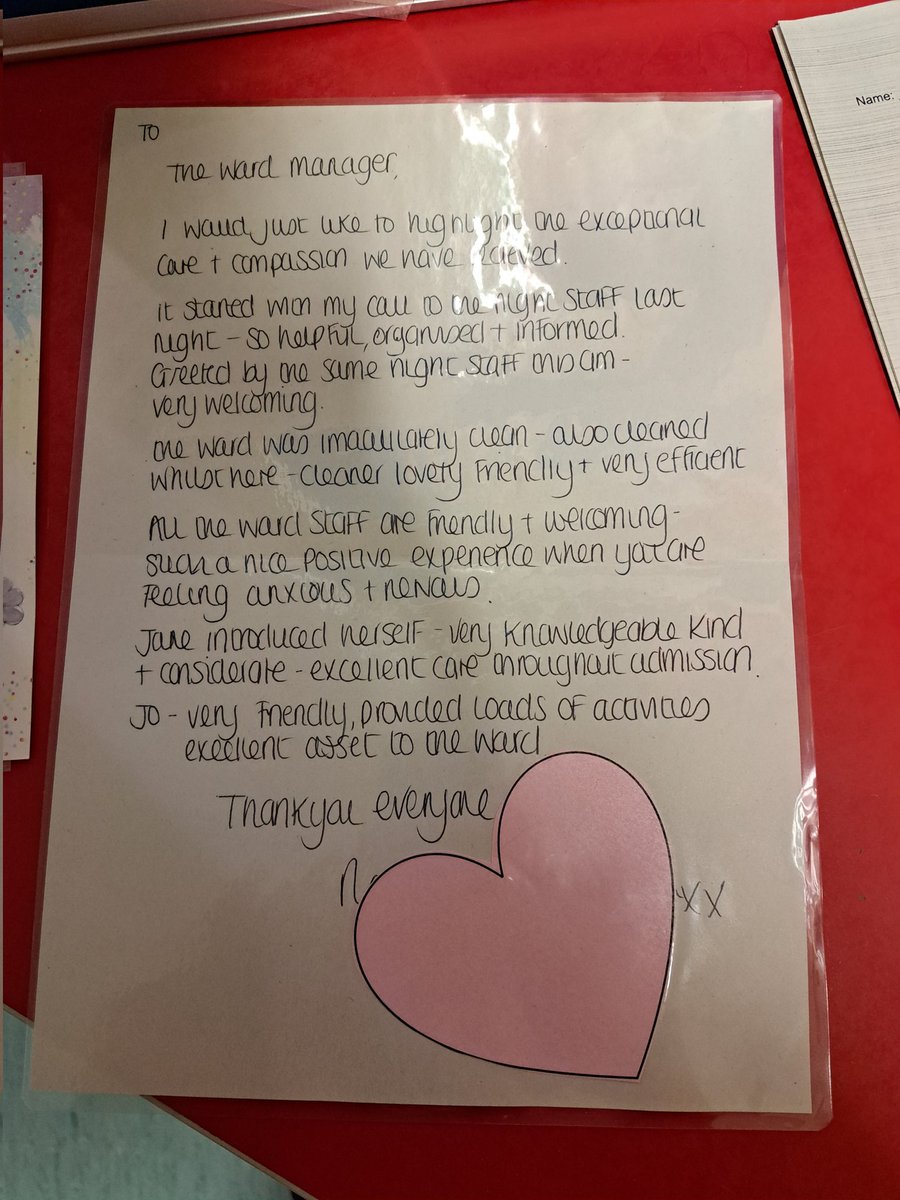 TO
The Ward Manager,
Name:
I would just like to highlight the exceptional
care + compassion we have recieved.
it started with my call to the night staff last
night - so helpful, organised + informed.
Greeted by the same night staff this am -
very welcoming.
the ward was immaculately clean - also cleaned
whilst here - cleaner lovely friendly + very efficient
All the ward staff are friendly + welcoming -
such a nice positive experience when you are
feeling anxious + nervous.
Jane introduced herself - very knowledgeable kind
+ considerate - excellent care throughout admission.
JO - very friendly, provided loads of activities
excellent asset to the ward
Thankyou everyone
xx